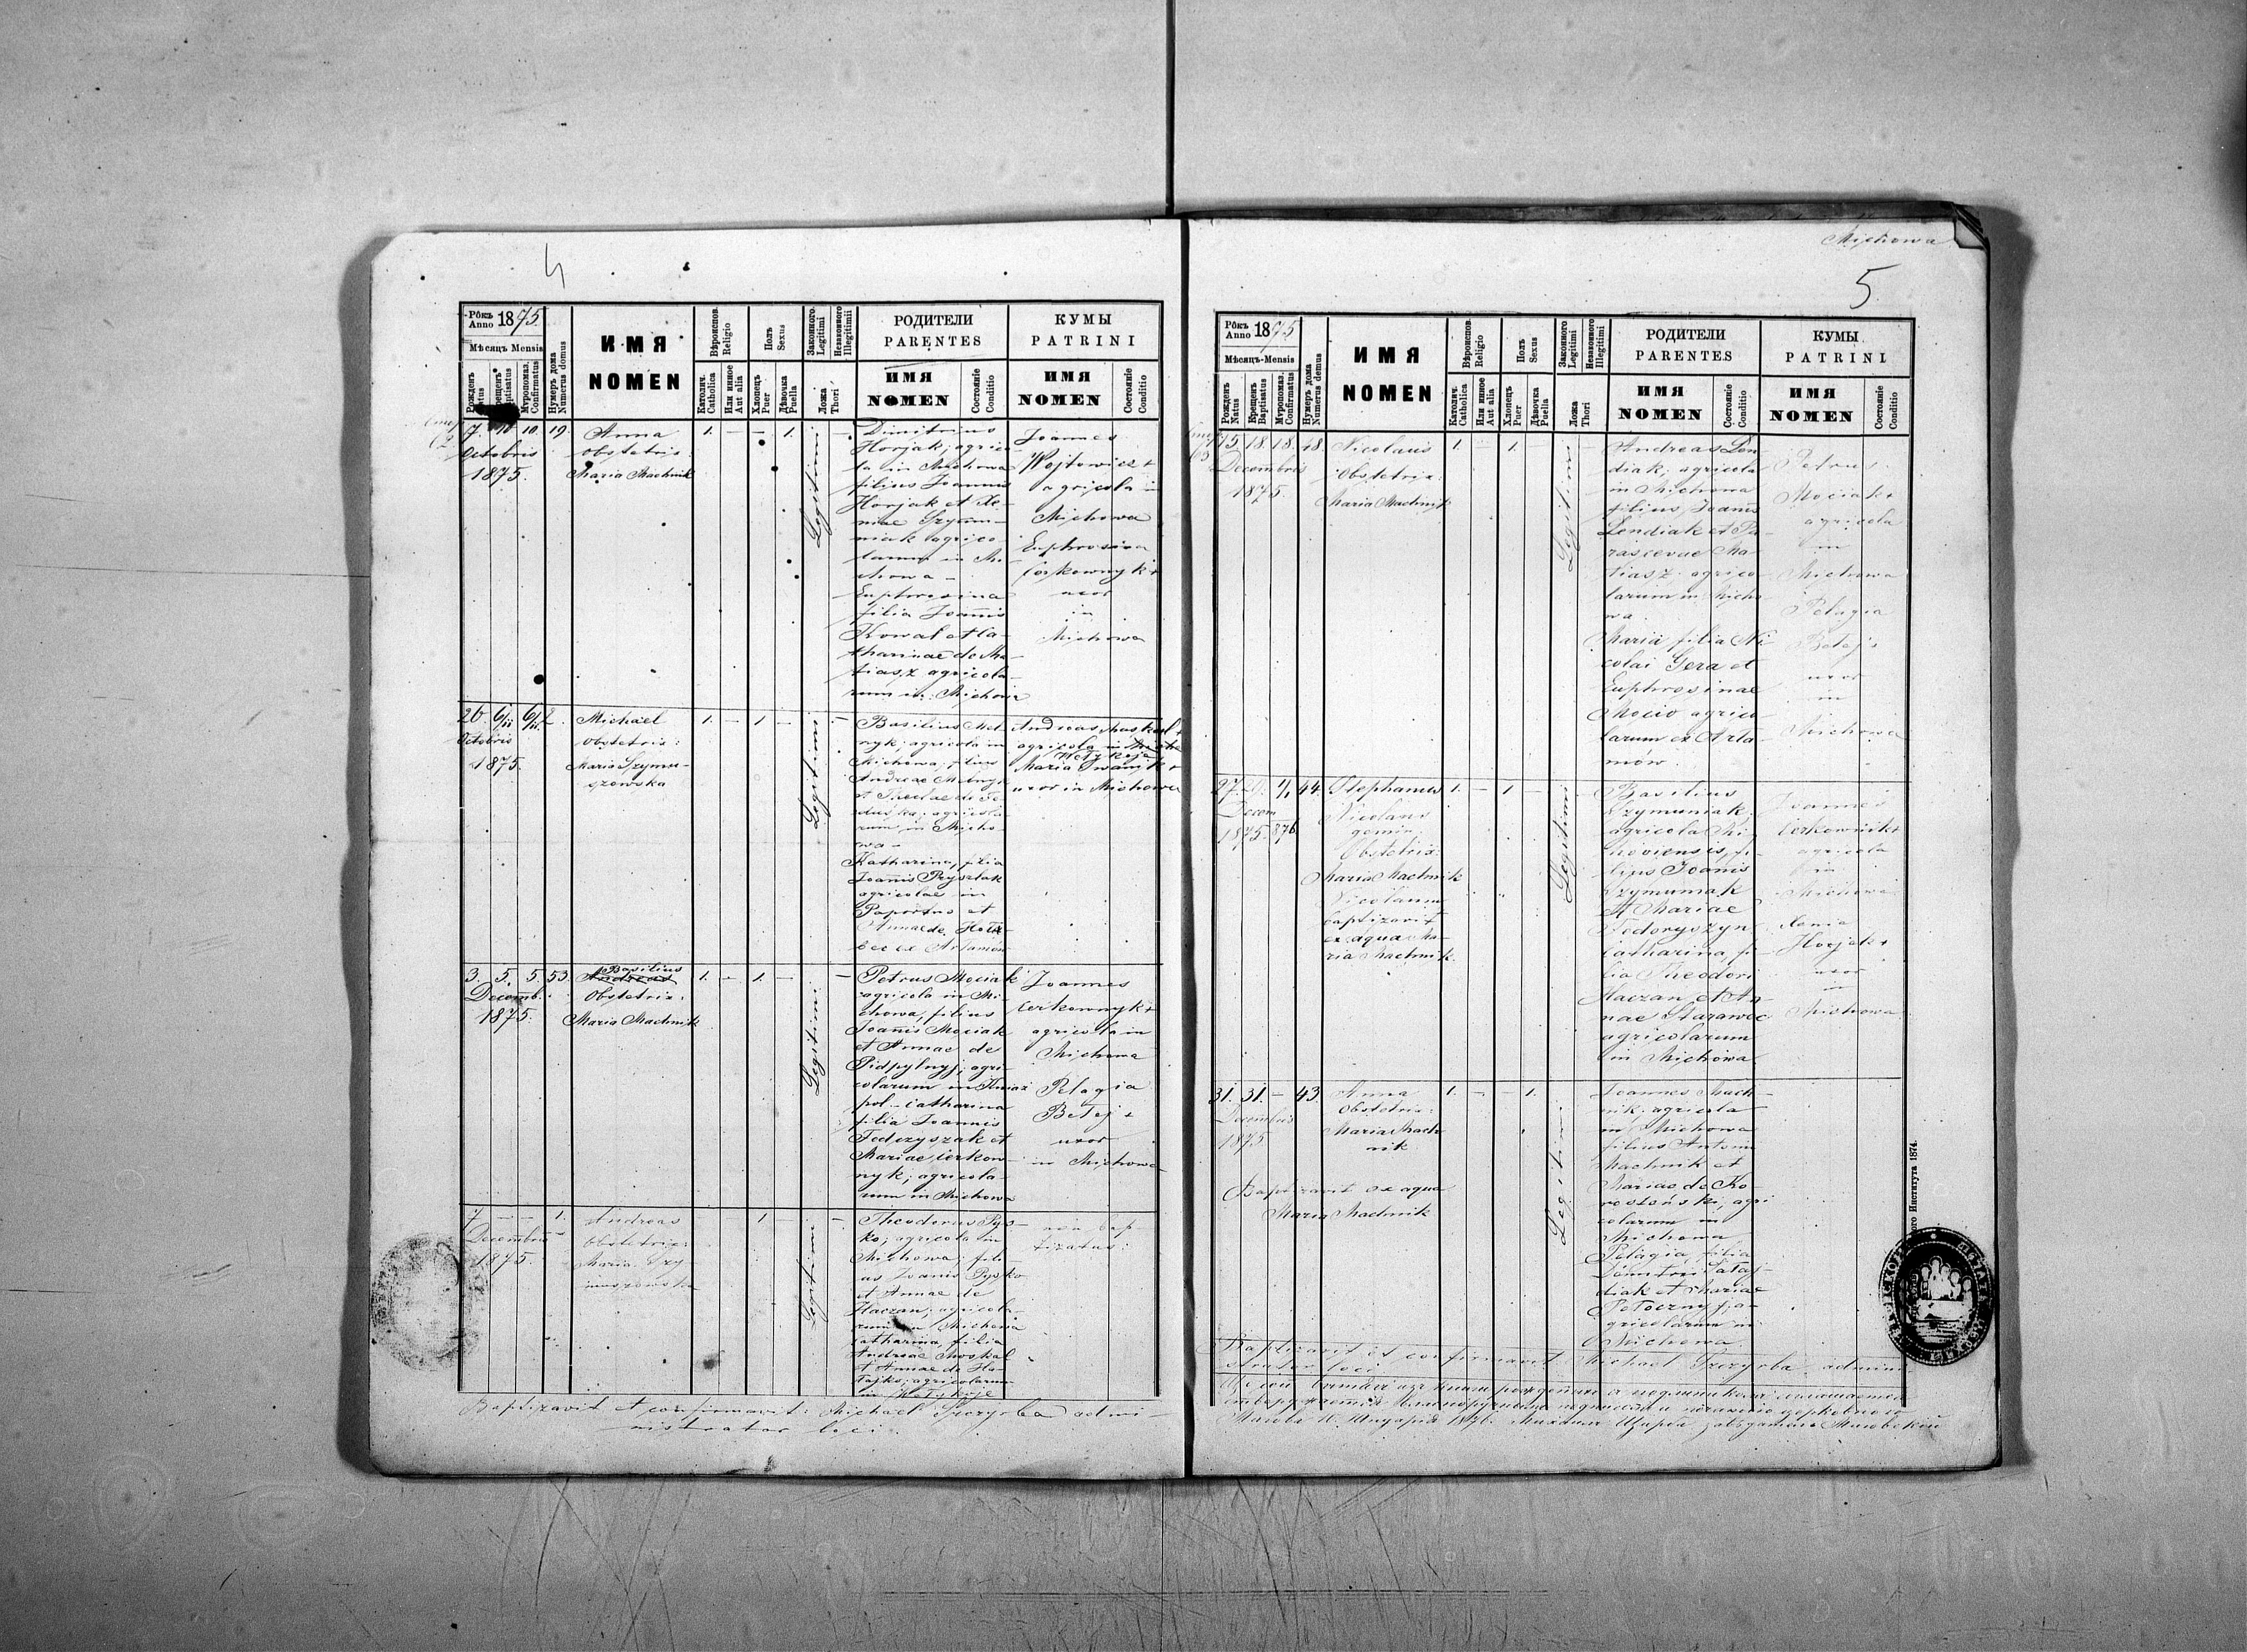 4
Рôкъ
Anno 1875
Мѣсяцъ Mensis
Рожденъ
Natus
Крещенъ
Baptisatus
Муропомаз.
Confirmatus
Нумеръ дома
Numerus domus
ИМЯ
NOMEN
Вѣроиспов.
Religio
Католич.
Catholica
Или инное
Aut alia
Полъ
Sexus
Хлопецъ
Puer
Дѣвочка
Puella
Законного
Legitimi
Незаконного
Illegitimii
Ложа
Thori
РОДИТЕЛИ
PARENTES
ИМЯ
NOMEN
Состояніе
Conditio
КУМЫ
PATRINI
ИМЯ
NOMEN
Состояніе
Conditio
7. 10. 10. 19.
Octobris
1875.
Anna
obstetrix
Maria Machnik
1. – – 1.
Legitimi
Dimitrius
Horjak; agrico-
la in Michowa
filius Joannis
Horjak et Xe-
niae Szym-
niak agrico-
larum in Mi-
chowa –
Euphrosina
filia Joannis
Kowal et Ca-
tharinae de Ma-
tiasz agricola-
rum in Michowa
Joannes
Wojtowicz +
agricola in
Michowa
Euphrosina
Cerkownyk +
uxor
in
Michowa
26. 6/11 6/11 2.
Octobris
1875.
Michael
obstetrix:
Maria Szymu-
szowska
1. – 1 –
Legitimi
Basilius Mel-
nyk; agricola in
Michowa, filius
Andreae Melnyk
et Theclae de Fe-
duska; agricola-
rum in Micho-
wa –
Katharina, filia
Joannis Prysztak
agricolae in
Paportno et
Annae de
ex Arlamów
Andreas Moskal +
agricola in
Wełykoje
Maria Iwanyk +
uxor in Michowa
3. 5. 5. 53.
Decemb.
1875.
Basilius
Andreas
Obstetrix:
Maria Machnik
1. – 1. –
Legitimi
Petrus Mociak
agricola in Mi-
chowa, filius
Joannis Mociak
et Annae de
Pidpylnyj; agri-
colarum in Kniaź
pol – Catharina
filia Joannis
Fedczyszak et
Mariae Cerkow-
nyk; agricola-
rum in Michowa
Joannes
Cerkownyk +
agricola in
Michowa
Pelagia
Bełej +
uxor
in Michowa
7 – – 1.
Decembris
1875.
Andreas
obstetrix:
Maria Szy-
muszowska
1 –
Legitimi
Theodorus Pys-
ko; agricola in
Michowa; fili-
us Joannis Pysko
et Annae de
Haczan; agricola-
rum in Michowa
Catharina, filia
Andreae Moskal
et Annae de Ha-
tajko; agricolarum
in Wełykoje
non bap-
tizatus:
Baptizavit et confirmavit: Michael Szczyrba admi
nistrator loci.
Michowa
5
Рôкъ
Anno 1875
Мѣсяцъ-Mensis
Рожденъ
Natus
Крещенъ
Baptisatus
Муропомаз.
Confirmatus
Нумеръ дома
Numerus domus
ИМЯ
NOMEN
Вѣроиспов.
Religio
Католич.
Catholica
Или инное
Aut alia
Полъ
Sexus
Хлопецъ
Puer
Дѣвочка
Puella
Законного
Legitimi
Незаконного
Illegitimi
Ложа
Thori
РОДИТЕЛИ
PARENTES
ИМЯ
NOMEN
Состояніе
Conditio
КУМЫ
PATRINI
ИМЯ
NOMEN
Состояніе
Conditio
15. 18. 18. 48.
Decembris
1875.
Nicolaus
Obstetrix:
Maria Machnyk
1. – 1.
Legitimi
Andreas Len-
diak; agricola
in Michowa
filius Joannis
Lendiak et Pa-
rascevae Ma-
tiasz; agrico-
larum in Micho-
wa.
Maria filia Ni-
colai Gera et
Euphrosinae
Mocio agrico-
larum ex Arla-
mów.
Petrus
Mociak +
agricola
in
Michowa
Pelagia
Bełej +
uxor
in
Michowa
27. 29. 1/1 44.
Decem
1875. 876
Stephanus
Nicolaus
gemin.
Obstetrix:
Maria Machnik
Nicolaum
baptizavit
ex aqua Ma-
ria Machnik
1. – 1 –
Legitimi
Basilius
Szymuniak;
agricola Mi-
choviensis, fi-
lius Joannis
Szymuniak
et Mariae
Fedoryszyn
Catharina, fi-
lia Theodori
Haczan et An-
nae Starawec
agricolarum
in Michowa
Joannes
Cerkownik +
agricola
in
Michowa
Xenia
Horjak +
uxor
in
Michowa
31. 31. – 43.
Decembris
1875
Anna
Obstetrix:
Maria Mach
nik
Baptizavit ex aqua
Maria Machnik
1. – – 1.
Legitimi
Joannes Mach-
nik; agricola
in Michowa
filius Antonii
Machnik et
Mariae de Ko-
agri
colarum in
Michowa
Pelagia, filia
Dimitrii
diak et Mariae
Potoczny; a-
gricolarum in
Michowa.
Baptizavit et confirmavit Michael Szczyrba admini
strator loci
Михаилъ Щирба
ого Института 1874.